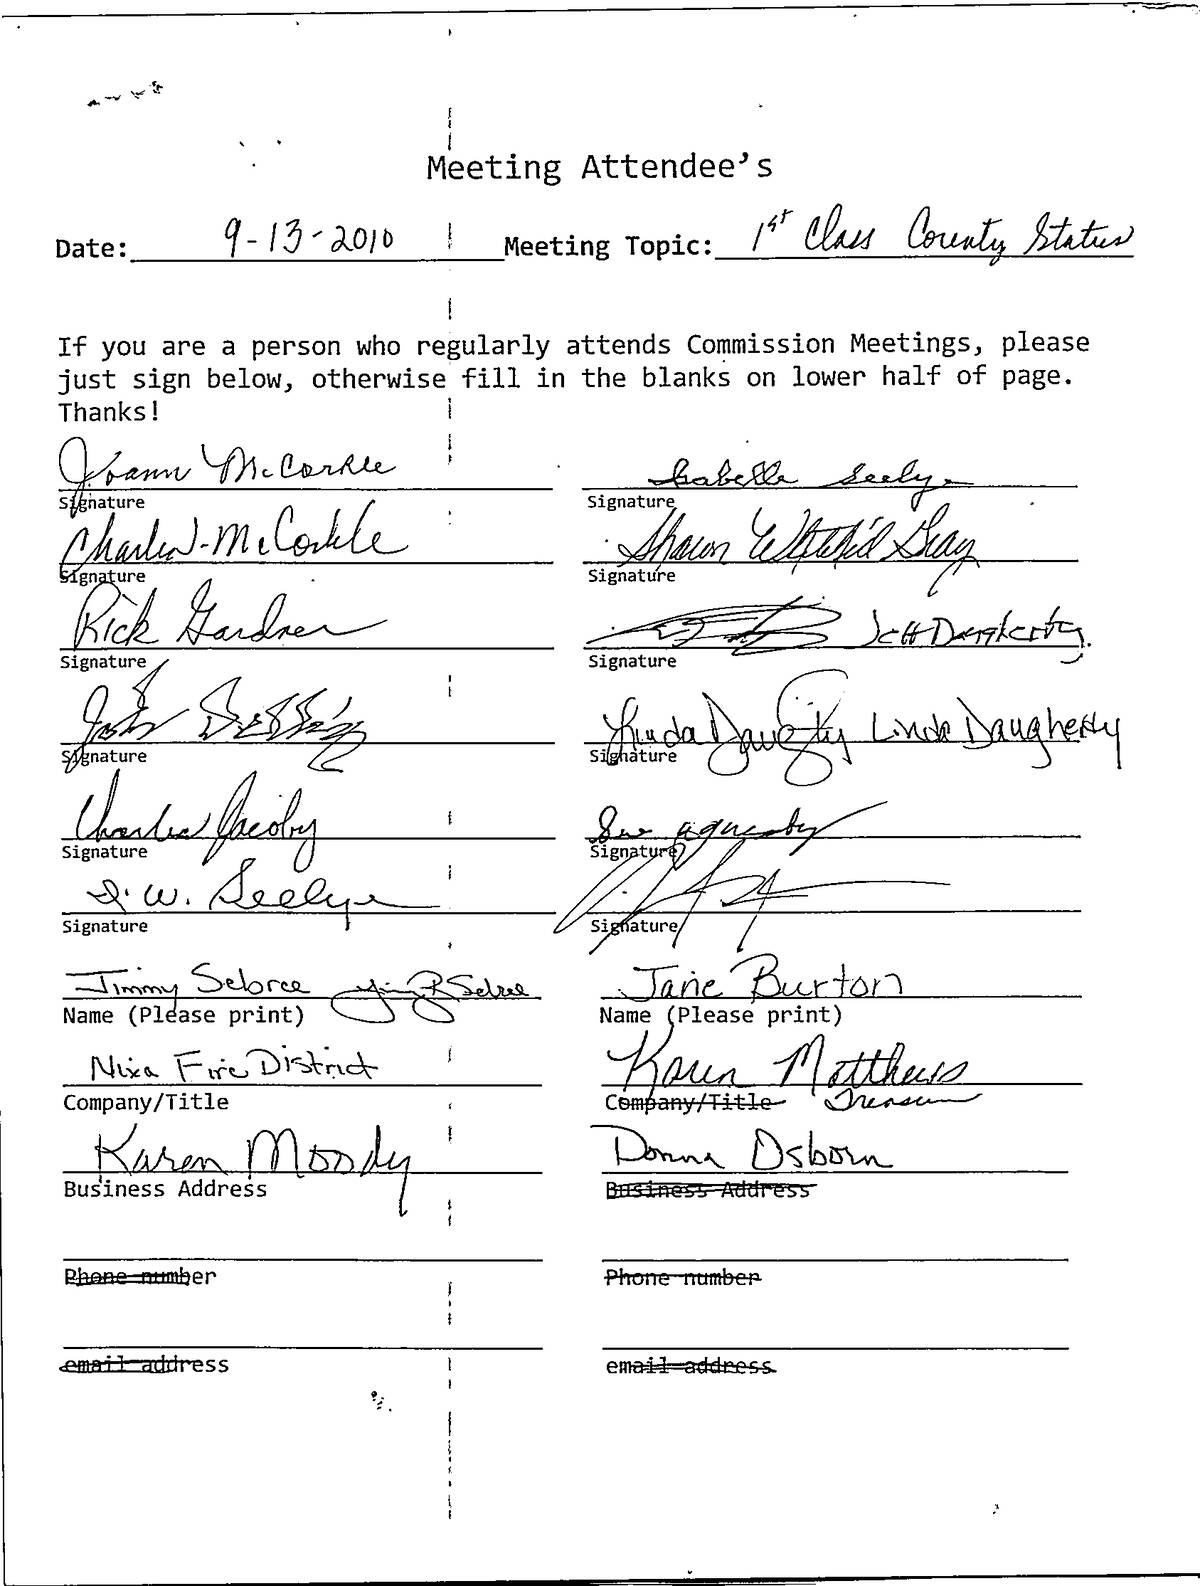 Meeting Attendee's
Date: 9-13-2010 Meeting Topic: 1st Class County Status
If you are a person who regularly attends Commission Meetings, please
just sign below, otherwise fill in the blanks on lower half of page.
Thanks!
Joann McCorkle Isabelle Seelye
Signature Signature
Charles McCorkle Shawn Gray
Signature Signature
Rick Gardner Jeff Daugherty
Signature Signature
John Linda Daugherty Linda Daugherty
Signature Signature
Charles Jacoby Sue
Signature Signature
I. W. Seelye
Signature Signature
Jimmy Sebree Jane Burton
Name (Please print) Name (Please print)
Nixa Fire District Karen Matthews
Company/Title Company/Title Treasurer
Karen Moody Donna Osborn
Business Address Business Address
Phone number Phone number
email address email address